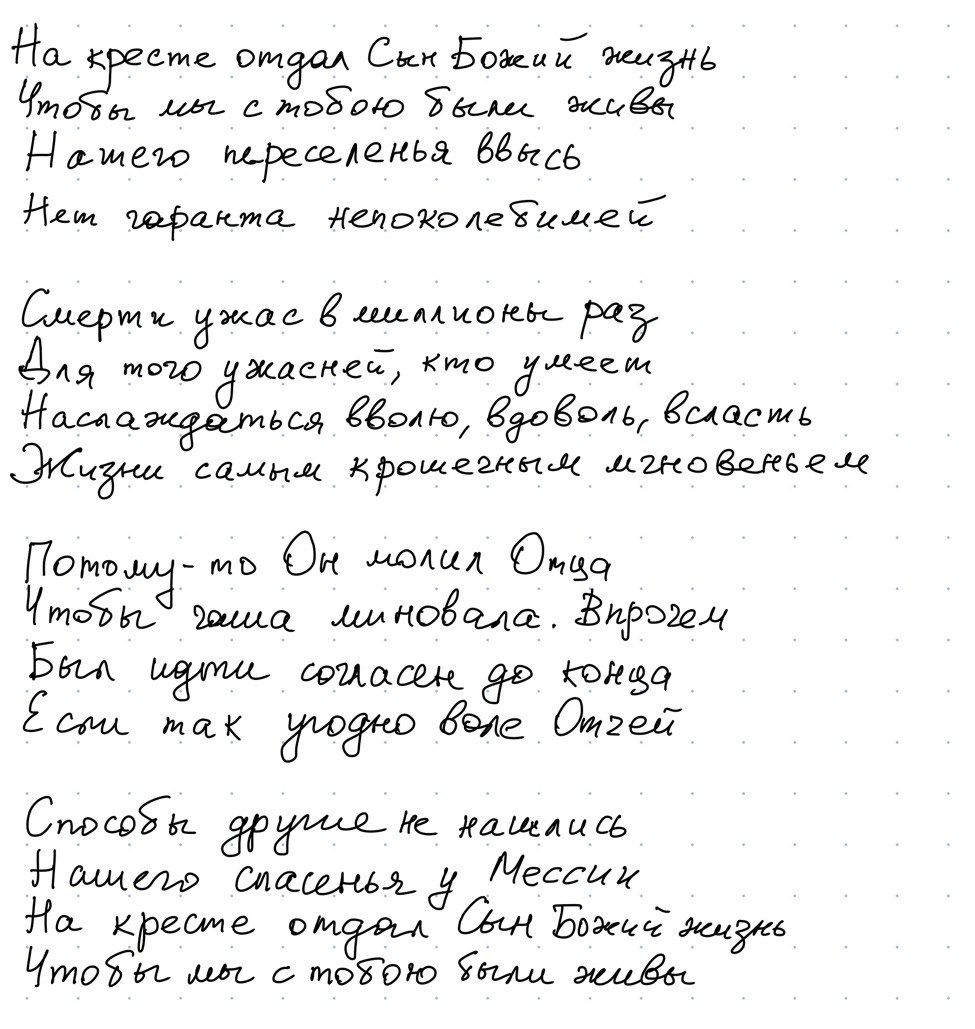 На кресте отдал Сын Божий жизнь
Чтобы мы с тобою были живы
Нашего переселенья ввысь
Нет гаранта непоколебимей
Смерти ужас в миллионы раз
Для того ужасней, кто умеет
Наслаждаться вволю, вдоволь, всласть
Жизни самым крошечным мгновеньем
Потому-то Он молил Отца
Чтобы чаша миновала. Впрочем
Был идти согласен до конца
Если так угодно воле Отчей
Способы другие не нашлись
Нашего спасенья у Мессии
На кресте отдал Сын Божий жизнь
Чтобы мы с тобою были живы